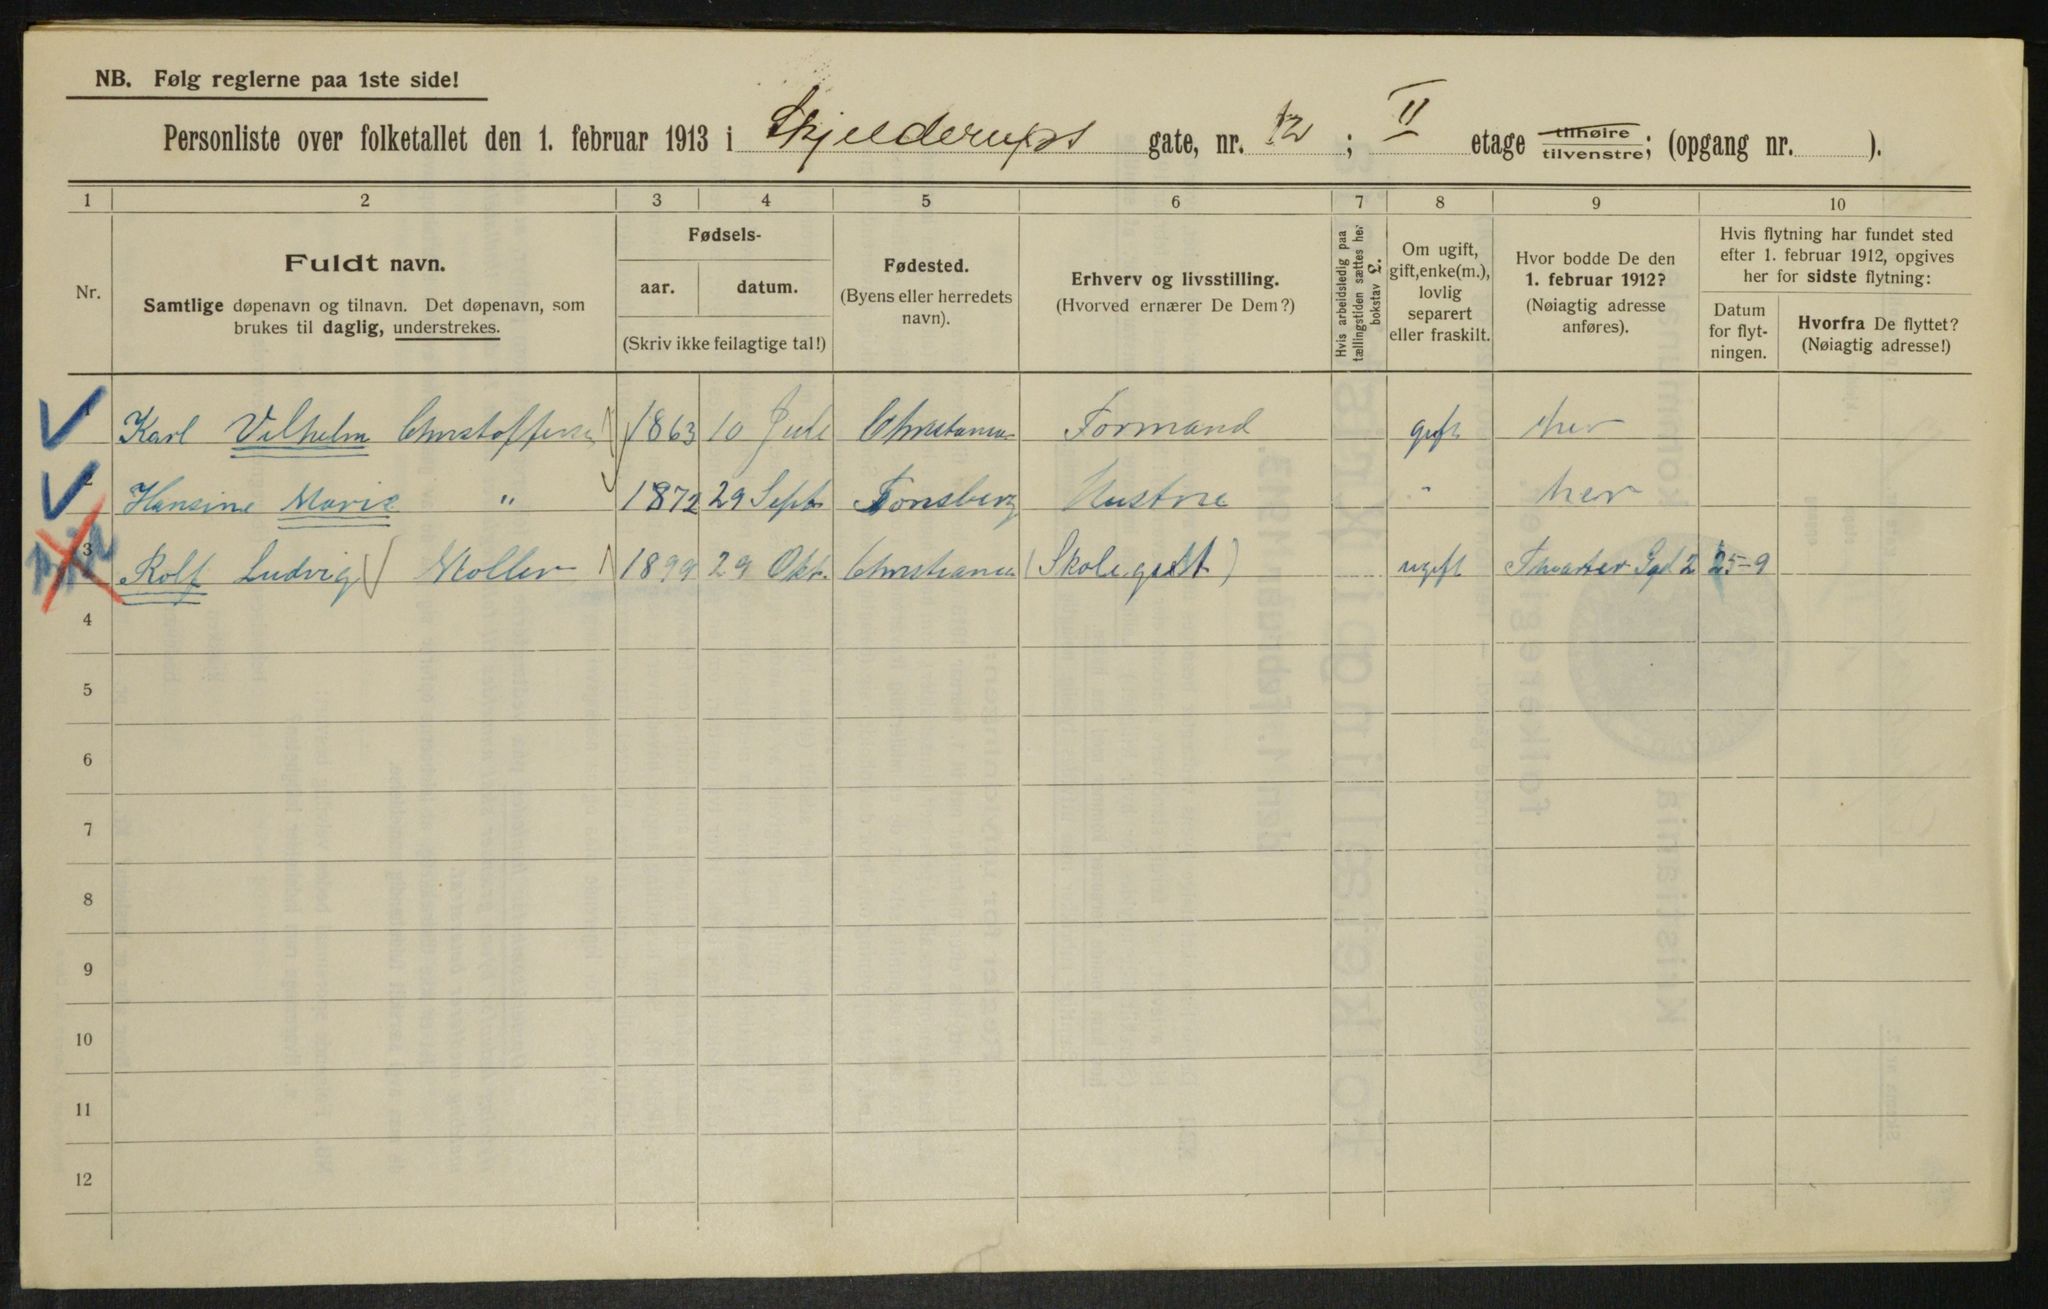 NB. Følg reglerne paa 1ste side!
Personliste over folketallet den 1. februar 1913 i Skjelderups gate, nr. 12; II etage tilhøire tilvenstre; (opgang nr. ).
1 2 3 4 5 6 7 8 9 10
Nr.
Fuldt navn.
Samtlige døpenavn og tilnavn. Det døpenavn, som
brukes til daglig, understrekes.
Fødsels-
aar. datum.
(Skriv ikke feilagtige tal!)
Fødested.
(Byens eller herredets
navn).
Erhverv og livsstilling.
(Hvorved ernærer De Dem?)
Hvis arbeidsledig paa
tællingstiden sættes her
bokstav L.
Om ugift,
gift, enke(m.),
lovlig
separert
eller fraskilt.
Hvor bodde De den
1. februar 1912?
(Nøiagtig adresse
anføres).
Hvis flytning har fundet sted
efter 1. februar 1912, opgives
her for sidste flytning:
Datum
for flyt-
ningen.
Hvorfra De flyttet?
(Nøiagtig adresse!)
1 Karl Vilhelm Christoffersen 1863 10 Juli Christiania Formand gift her
2 Hansine Marie " 1872 29 Sept Tønsberg Hustru " her
3 Rolf Ludvig Møller 1899 29 Okt. Christiania (Skolegutt) ugift 2 25-9
4
5
6
7
8
9
10
11
12